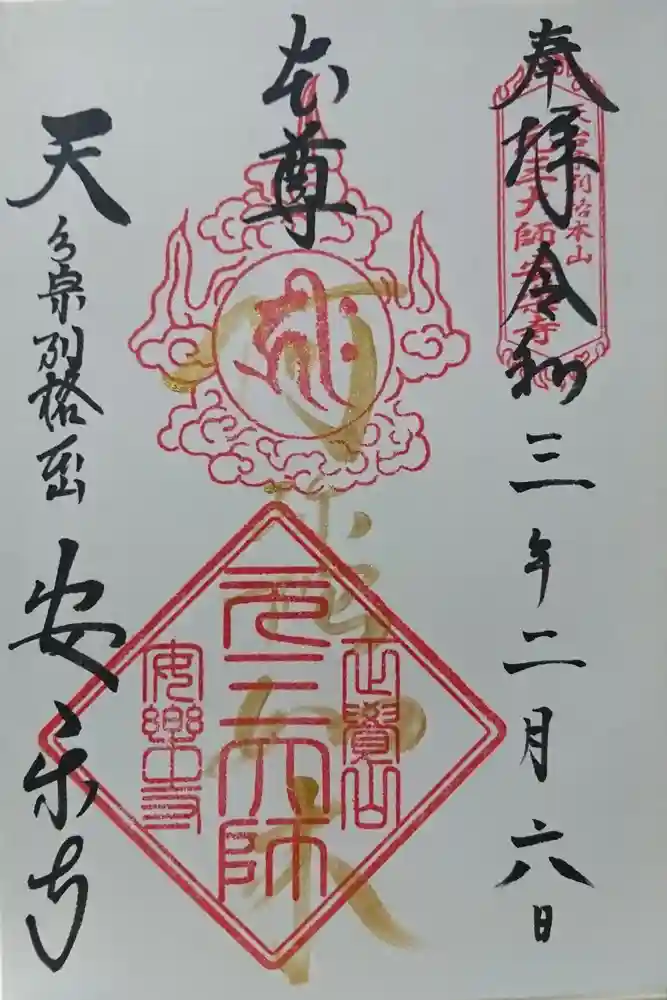 奉拝 令和三年二月六日
天台宗別格本山
元三大師安楽寺
本尊
如来
正覺山
元三大師
安樂寺
天台宗別格本山 安楽寺